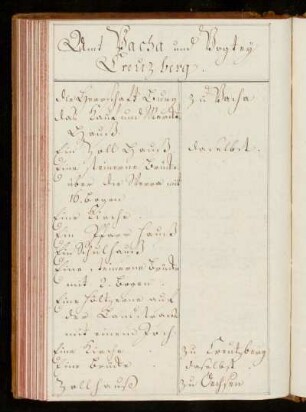 Amt Vacha und Vogtey
Creutzberg.
die Herrschaftl. Burg zu Vacha
das Kauf und
Hauß
Ein Zoll Hauß daselbst.
Eine steinerne Brücke
über die Werra mit
16. bogen
Eine Kirche
Ein Pfarr Hauß
Ein Schulhauß
Eine steinerne Brücke
mit 2. bogen.
Eine höltzerne auf
der Landstraße
mit einem Joch.
Eine Kirche zu Creutzberg
Eine Brücke daselbst.
Zollhauß zu Oechsen